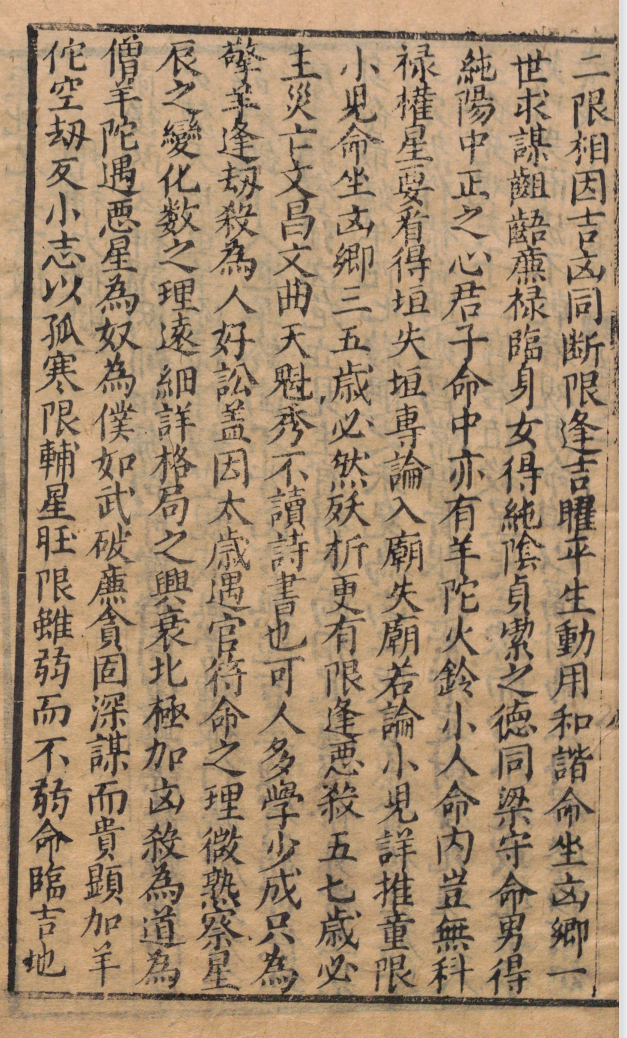 二限相因吉凶同断限逢吉曜平生動用和諧命坐凶郷一
世求謀齟齬廉禄臨身女得純陰貞潔之徳同梁守命男得
純陽中正之心君子命中亦有羊陀火鈴小人命内豈無科
禄權星要看得垣失垣専論入廟失廟若論小児詳推童限
小児命坐凶郷三五歳必然殀折更有限逢悪殺五七歳必
主災亡文昌文曲天魁秀不讀詩書也可人多學少成只為
擎羊逢刼殺為人好訟蓋因太歳遇官符命之理微熟察星
辰之變化数之理遠細詳格局之興衰北極加凶殺為道為
僧羊陀遇悪星為奴為僕如武破廉貪固深謀而貴顕加羊
佗空刼反小志以孤寒限輔星旺限雖弱而不弱命臨吉地